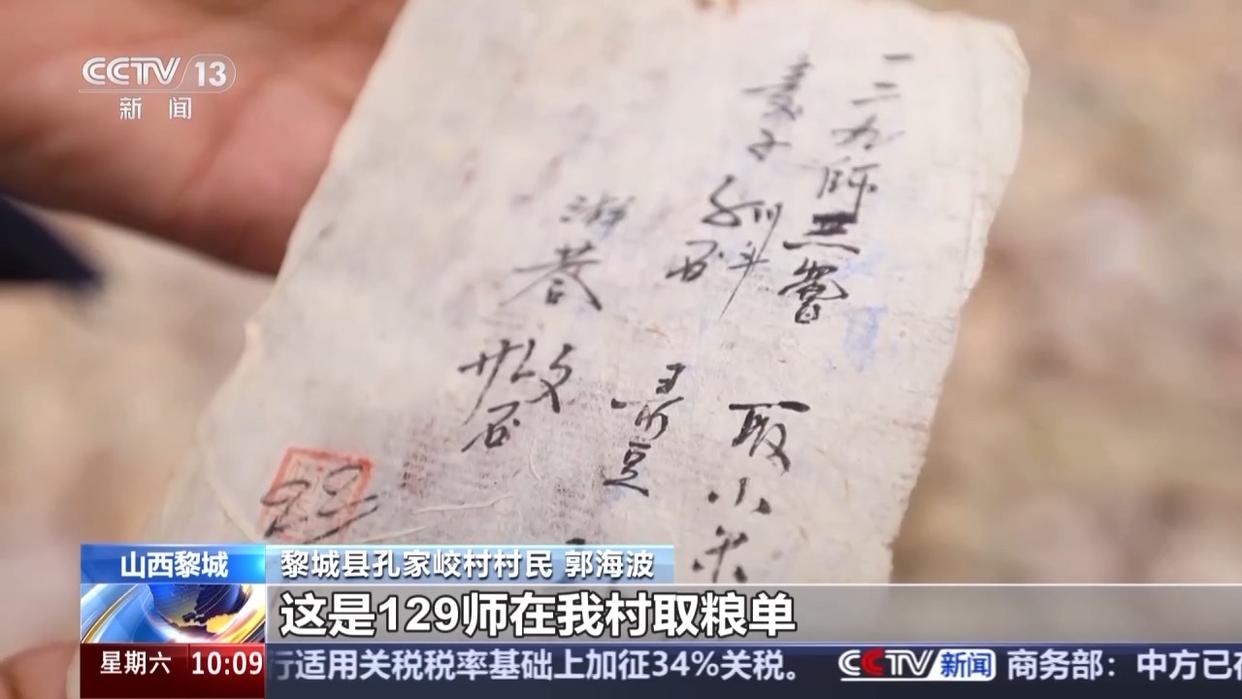 CCTV 13
新闻
一二九師三營
取小米
麦子
斗
石
黑豆
石
山西黎城
黎城县孔家峧村村民 郭海波
这是129师在我村取粮单
星期六 10:09
行适用关税税率基础上加征34%关税。 CCTV 新闻 商务部：中方已在